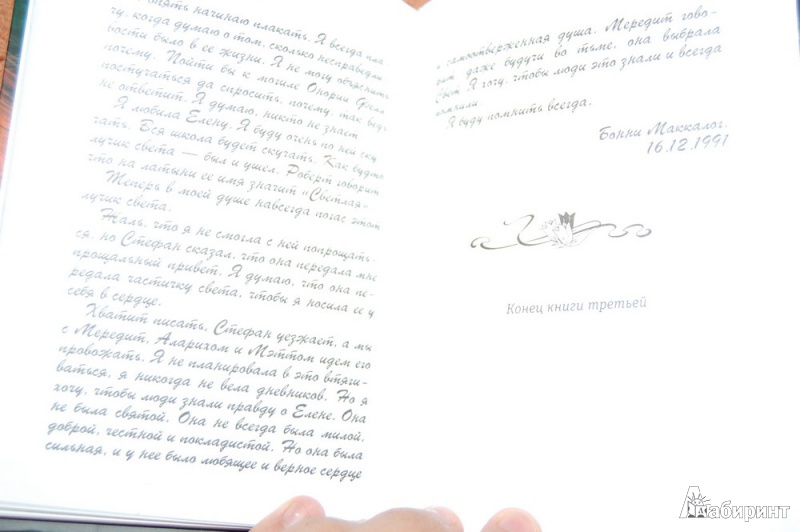 Опять начинаю плакать. Я всегда пла
чу, когда думаю о том, сколько несправедли-
вости было в ее жизни. Я не могу объяснить
почему. Пойти бы к могиле Онории Фелл
постучаться да спросить, почему, так ведь
не ответит. Я думаю, никто не знает.
Я любила Елену. Я буду очень по ней ску
чать. Вся школа будет скучать. Как будто
лучик света — был и ушел. Роберт говорит
что на латыни ее имя значит «Светлая»
Теперь в моей душе навсегда погас этот
лучик света.
Жаль, что я не смогла с ней попрощать
ся, но Стефан сказал, что она передала мне
прощальный привет. Я думаю, что она пе-
редала частичку света, чтобы я носила ее у
себя в сердце.
Хватит писать. Стефан уезжает, а мы
с Мередит, Аларихом и Мэттом идем его
провожать. Я не планировала в это втяги-
ваться, я никогда не вела дневников. Но я
хочу, чтобы люди знали правду о Елене. Она
не была святой. Она не всегда была милой,
доброй, честной и покладистой. Но она была
сильная, и у нее было любящее и верное сердце
и самоотверженная душа. Мередит гово-
рит даже будучи во тьме, она выбрала
Свет. Я хочу, чтобы люди это знали и всегда
помнили.
Я буду помнить всегда.
Бонни Маккалог.
16.12.1991
Конец книги третьей
Лабиринт